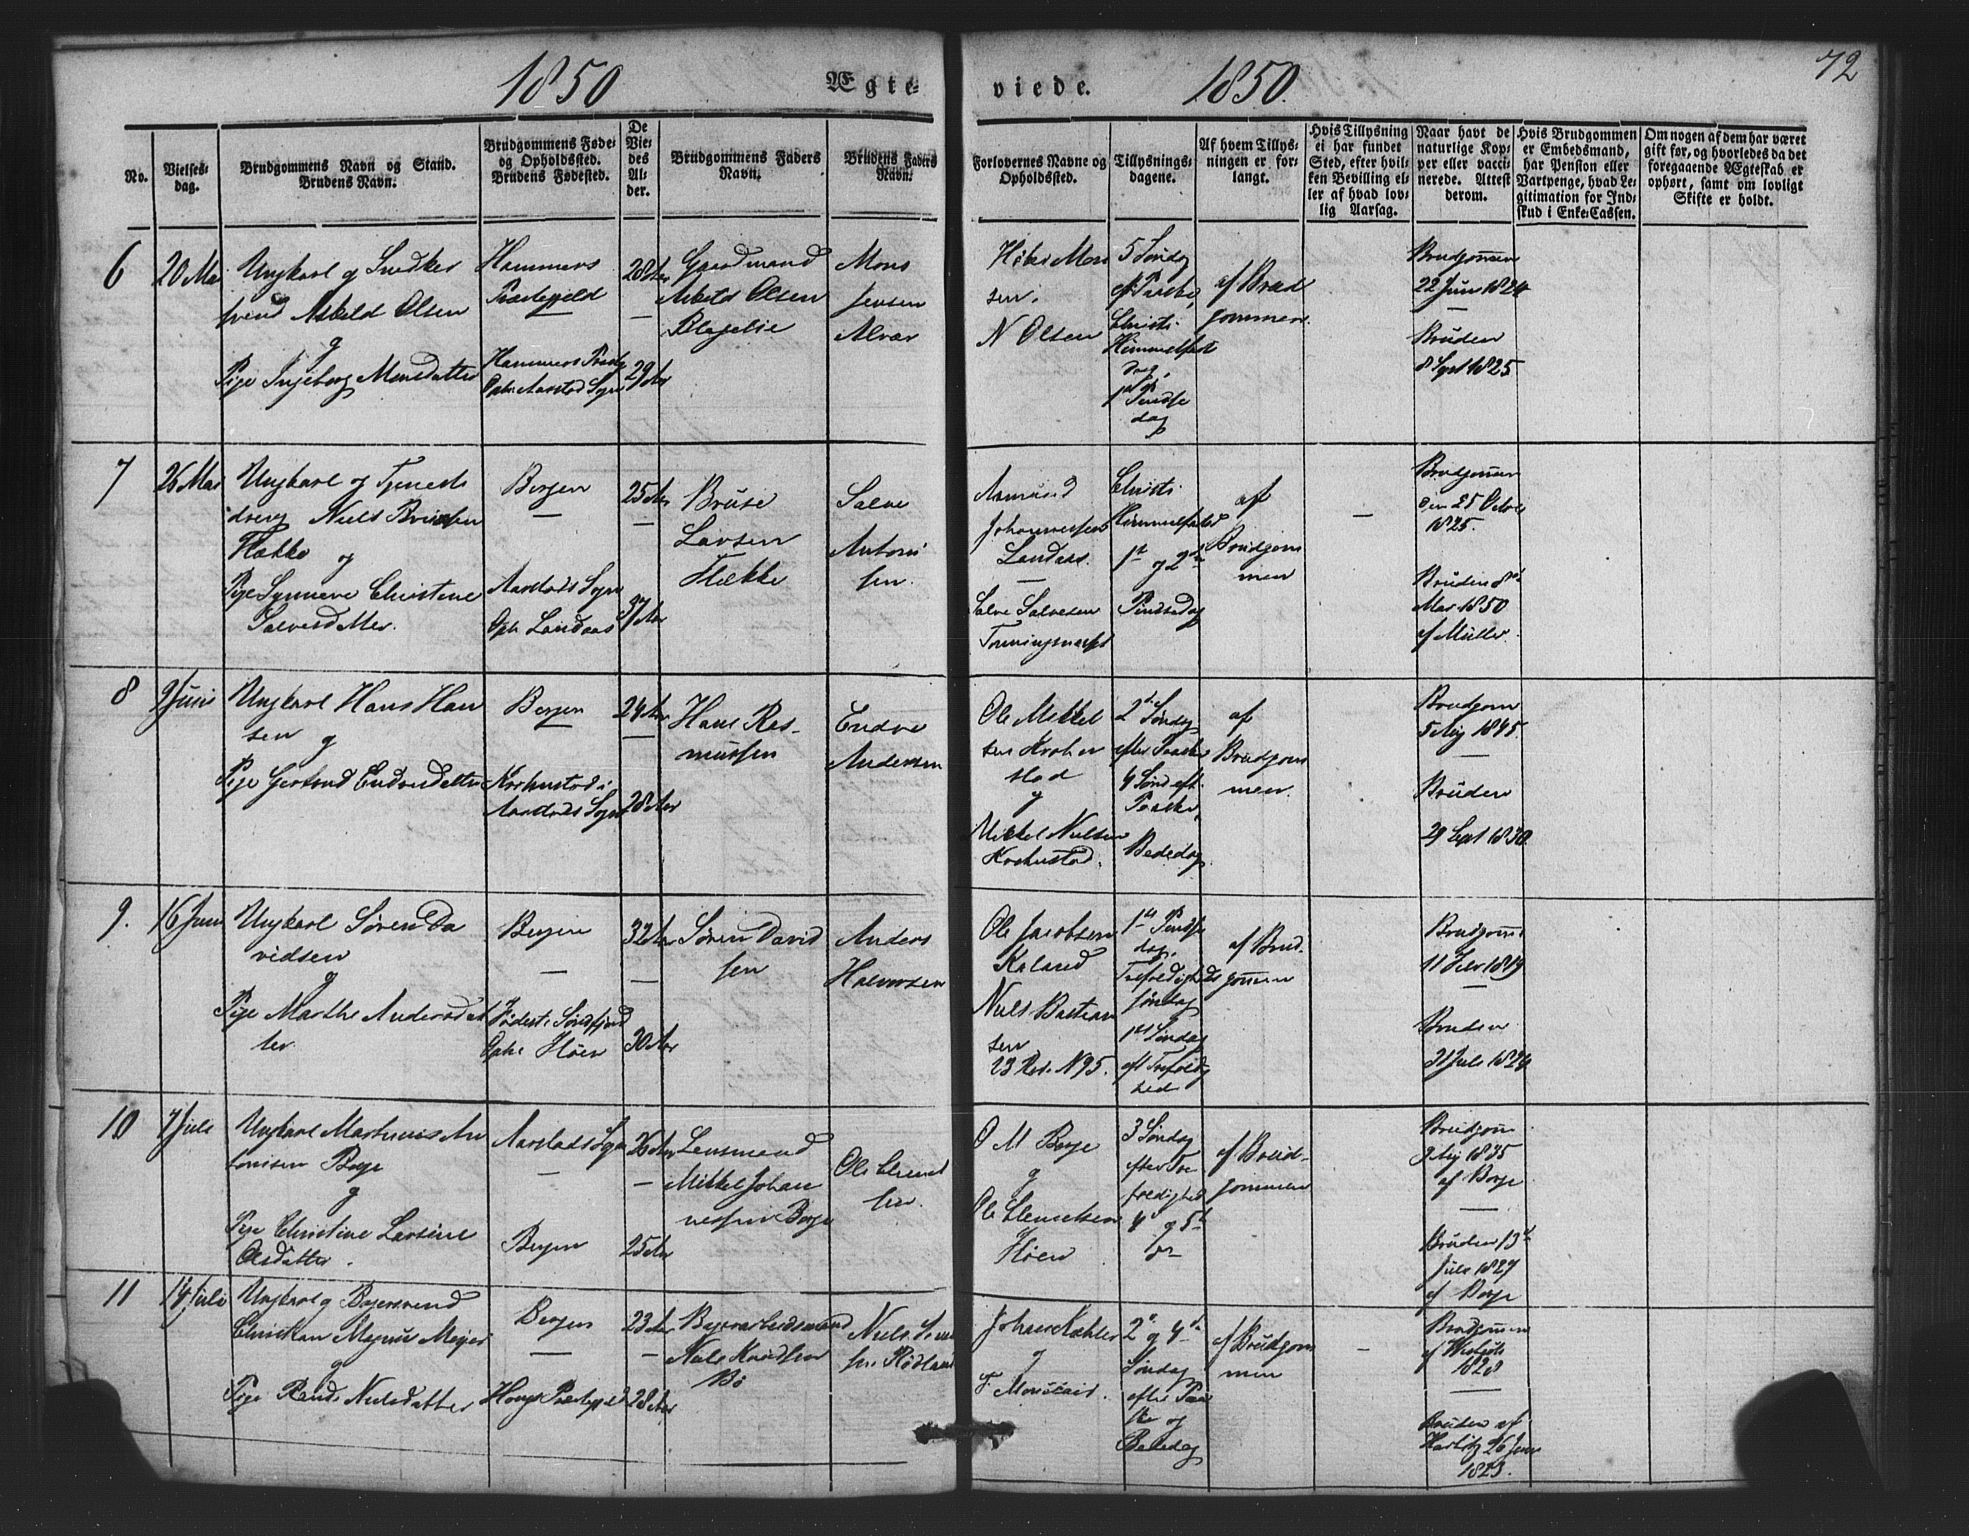 1850
Ægte-
viede.
1850.
72
No.
Vielses-
dag.
Brudgommens Navn og Stand.
Brudens Navn.
Brudgommens Føde-
og Opholdssted.
Brudens Fødested.
De
Vie-
des
Al-
der.
Brudgommens Faders
Navn.
Brudens Faders
Navn.
Forlovernes Navne og
Opholdssted.
Tillysnings-
dagene.
Af hvem Tillys-
ningen er for-
langt.
Hvis Tillysning
ei har fundet
Sted, efter hvil-
ken Bevilling el-
ler af hvad lov-
lig Aarsag.
Naar havt de
naturlige Kop-
per eller vacci-
nerede. Attest
derom.
Hvis Brudgommen
er Embedsmand,
har Pension eller
Vartpenge, hvad Le-
gitimation for Ind-
skud i Enke-Cassen.
Om nogen af dem har været
gift før, og hvorledes da det
foregaaende Ægteskab er
ophørt, samt om lovligt
Skifte er holdt.
6
20 Mai
Ungkarl og Snedker
svend Askild Olsen
og
Pige Ingeborg Monsdatter
Hammers
Præstegjeld
Hammers Præstg
Oph: Aarstad Sogn
28 Aar
29 Aar
Gaardmand
Askild Olsen
Mons
Jensen
Alvær
N Olsen
5 Søndag
ef. Paaske,
Christi
Himmelfarts
dag,
1st Pindse
dag
af Brud
gommen
Brudgommen
22 Juni 1824
Bruden
8 Sept 1825
7
26 Mai
Ungkarl og Tjeneste
dreng Niels Brusen
Flække og
Pige Synneve Christine
Salvesdatter.
Bergen
Aarstads Sogn
Oph: Landaas
25 Aar
37 Aar
Bruse
Larsen
Flække
Salve
Antoni
sen.
Aamund
Johannessen
Landaas.
Salve Salvesen
Christi
Himmelfartsd
1st og 2den
Pindsedag
af
Brudgom
men
Brudgommen
den 25 Octob
1825.
Bruden 8de
Mai 1850
af Müller.
8
9 Juni
Ungkarl Hans Han
sen og
Pige Gertrud Endresdatter
Bergen
Kronstad i
Aarstads Sogn
24 Aar
28 Aar
Hans Ras-
mussen
Endre
Andersen
Ole Mikkel
sen Kron
stad
og
Mikkel Nielsen
Kronstad.
2den Søndag
efter Paaske
4 Sønd eft.
Paaske,
Bededag
af
Brudgom
men.
Brudgom
5 Aug 1845.
Bruden
29 Sept 1830
9.
16 Juni
Ungkarl Søren Da
vidsen
og
Pige Marthe Andersdat
ter
Bergen
Fødest: Søndfjord
Oph: Høien
32 Aar
30 Aar
Søren David
sen
Anders
Halvorsen
Ole Jacobsen
Kaland
Niels Bastian
sen
23 Rod. N 95.
1st Pindse
dag,
Trefoldigheds
søndag
1st Søndag
eft Trefoldig
hed
af Brud-
gommen
Brudgom
11 Febr 1819
Bruden
31 Juli 1824
10
7 Juli
Ungkarl Martinus An
tonisen Borge
og
Pige Christine Larsine
Olsdatter.
Aarstads Sogn
Bergen
26 Aar
25 Aar
Lensmand
Mikkel Johan
nessen Borge
Ole Clemet
sen.
O M Borge
og
Ole Clemetsen
Høien
3 Søndag
efter Tre
foldighed
4de og 5te
do
af Brud-
gommen
Brudgom
9 Aug 1835
af Borge
Bruden 13de
Juli 1827
af Borge
11
14 Juli
Ungkarl og Bagersvend
Christian Magnus Meyer
og
Pige Randi Nielsdatter
Bergen
Hougs Præstegjeld
23 Aar
28 Aar
Bagerarbeidsmand
Niels Knudsen
Bø
Johan Køhler
og
2den og 4de
Søndag
efter Paa
ske og
Bededag
af Brudgom
men
Brudgommen
1828
Bruden af
Hartvig 26 Juni
1823.